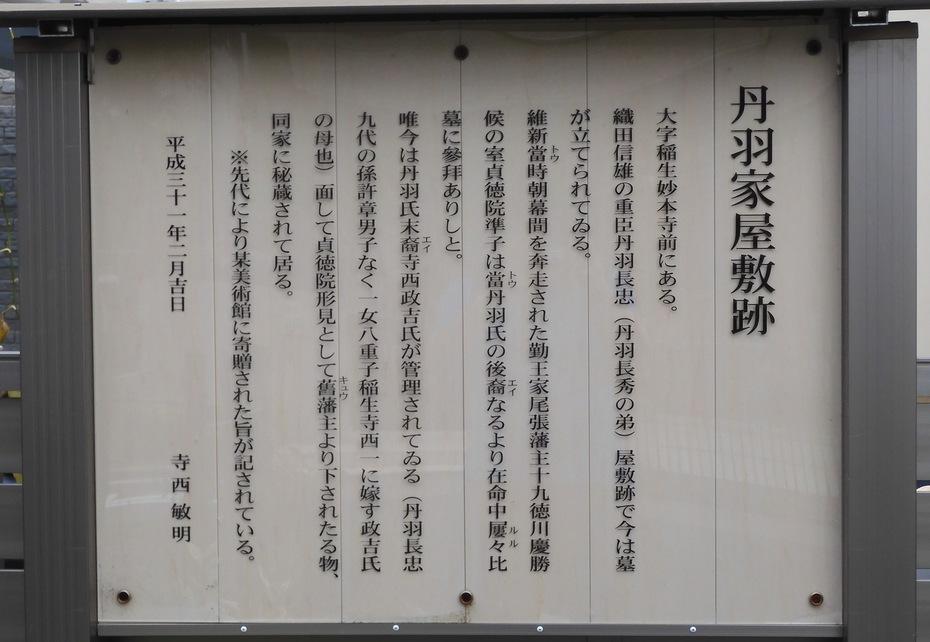 丹羽家屋敷跡
大字稲生妙本寺前にある。
織田信雄の重臣丹羽長忠（丹羽長秀の弟）屋敷跡で今は墓
が立てられてゐる。
維新當時朝幕間を奔走された勤王家尾張藩主十九徳川慶勝
候の室貞徳院準子は當丹羽氏の後裔なるより在命中屢々比
墓に參拜ありしと。
唯今は丹羽氏末裔寺西政吉氏が管理されてゐる（丹羽長忠
九代の孫許章男子なく一女八重子稲生寺西一に嫁す政吉氏
の母也）面して貞徳院形見として舊藩主より下されたる物、
同家に秘蔵されて居る。
※先代により某美術館に寄贈された旨が記されている。
平成三十一年二月吉日　寺西敏明